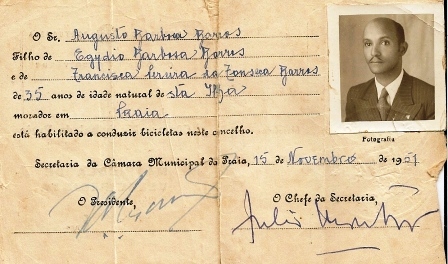 O Sr. Augusto Barbosa Barros
Filho de Egydio Barbosa Barros
e de Francisca Pereira da Fonseca Barros
de 35 anos de idade natural de sta Ilha
morador em Praia
está habilitado a conduzir bicicletas neste concelho.
Fotografia
Secretaria da Câmara Municipal da Praia, 15 de Novembro de 19
O Presidente,
O Chefe da Secretaria,
Julio